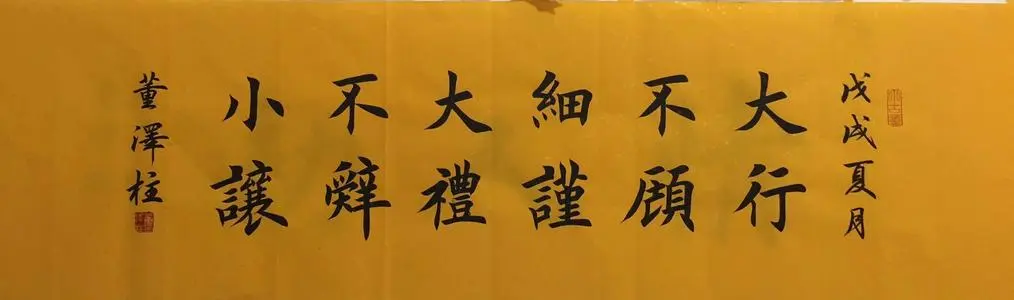 戊戌夏月
大行
不顧
細謹
大禮
不辤
小讓
董澤柱